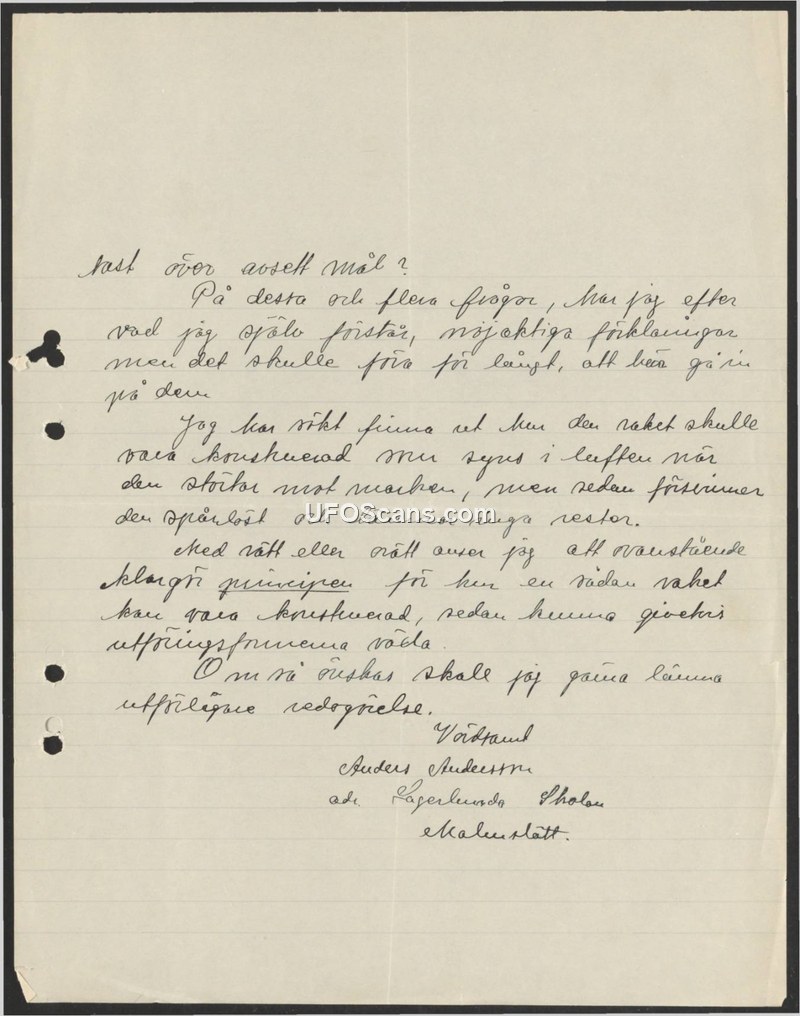 rast över avsett mål?
På dessa och flera frågor, har jag efter
vad jag själv förstår, nöjaktiga förklaringar
men det skulle föra för långt, att här gå in
på dem
Jag har sökt finna ut hur den raket skulle
vara konstruerad som syns i luften när
den störtar mot marken, men sedan försvinner
den spårlöst och inga rester.
UFOScans.com
Med rätt eller orätt anser jag att ovanstående
klargör principen för hur en sådan raket
kan vara konstruerad, sedan kunna givetvis
utföringsformerna växla.
Om så önskas skall jag gärna lämna
utförligare redogörelse.
Vördsamt
Anders Andersson
adr. Lagerlunda Skolan
Malmslätt.